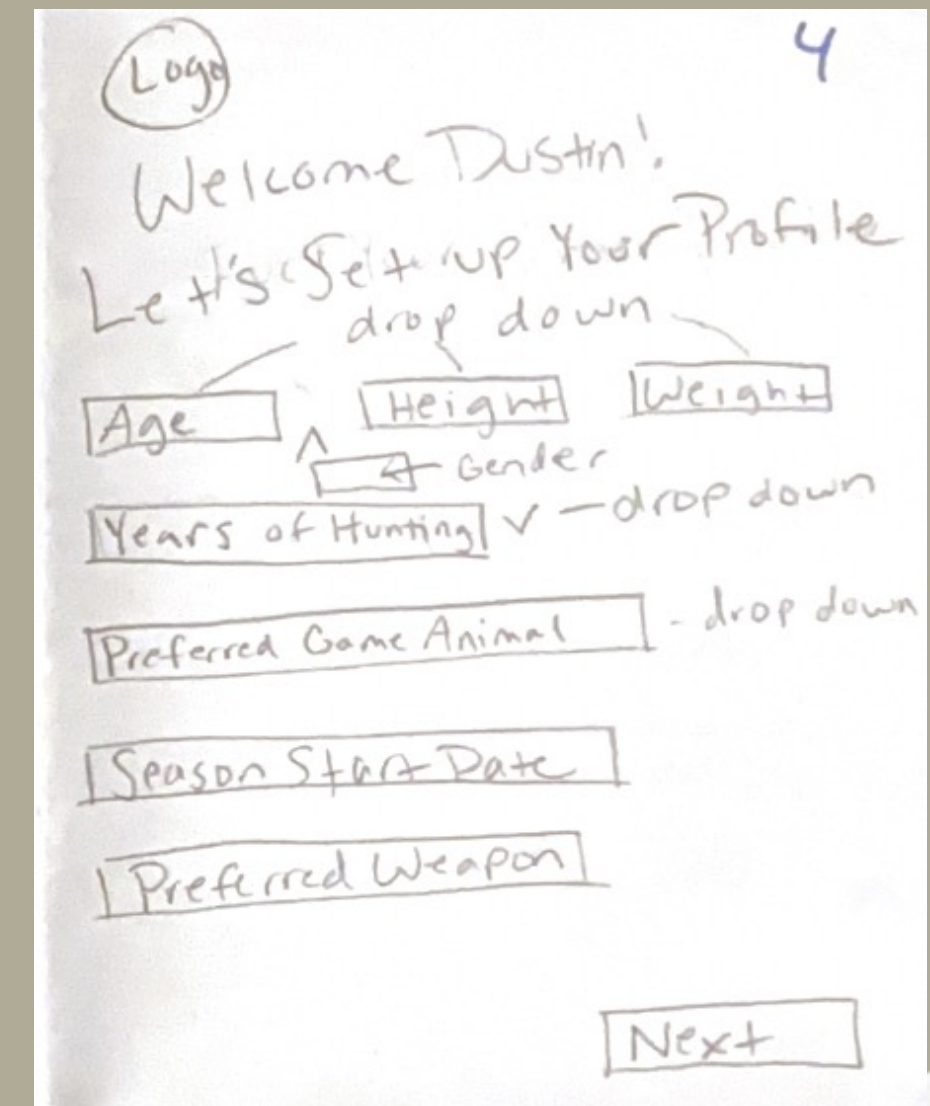 Logo
4
Welcome Dustin!
Let's Set up Your Profile
drop down
Age
Height
Weight
^
Gender
Years of Hunting v - drop down
Preferred Game Animal - drop down
Season Start Date
Preferred Weapon
Next